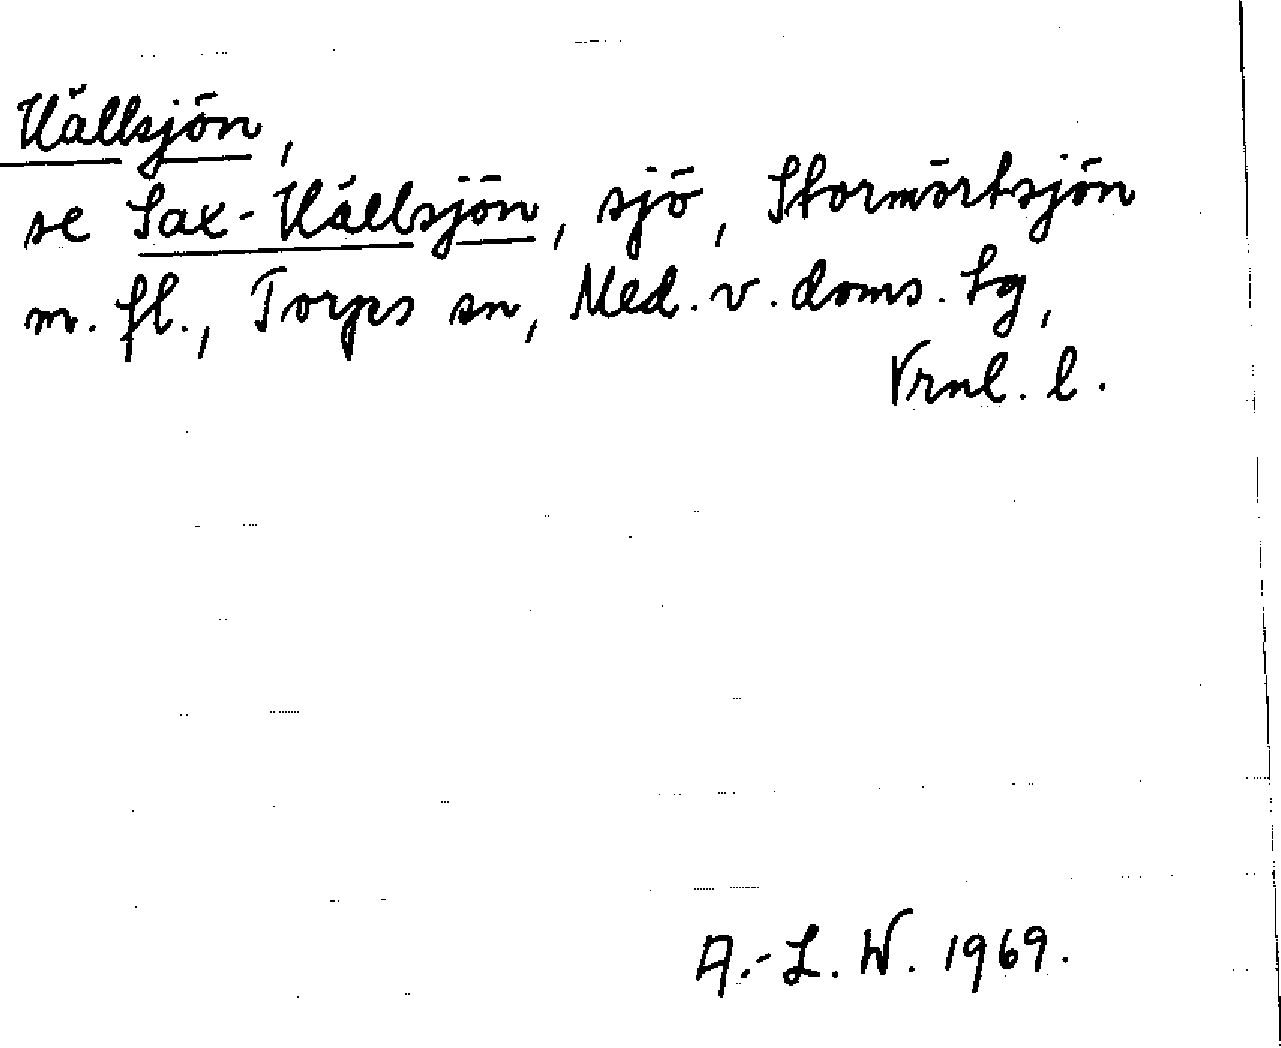 Källsjön,
se Sax-Källsjön, sjö, Stormörtsjön
m. fl., Torps sn, Med. v. doms. tg,
Vrnl. l.
A.-L. W. 1969.